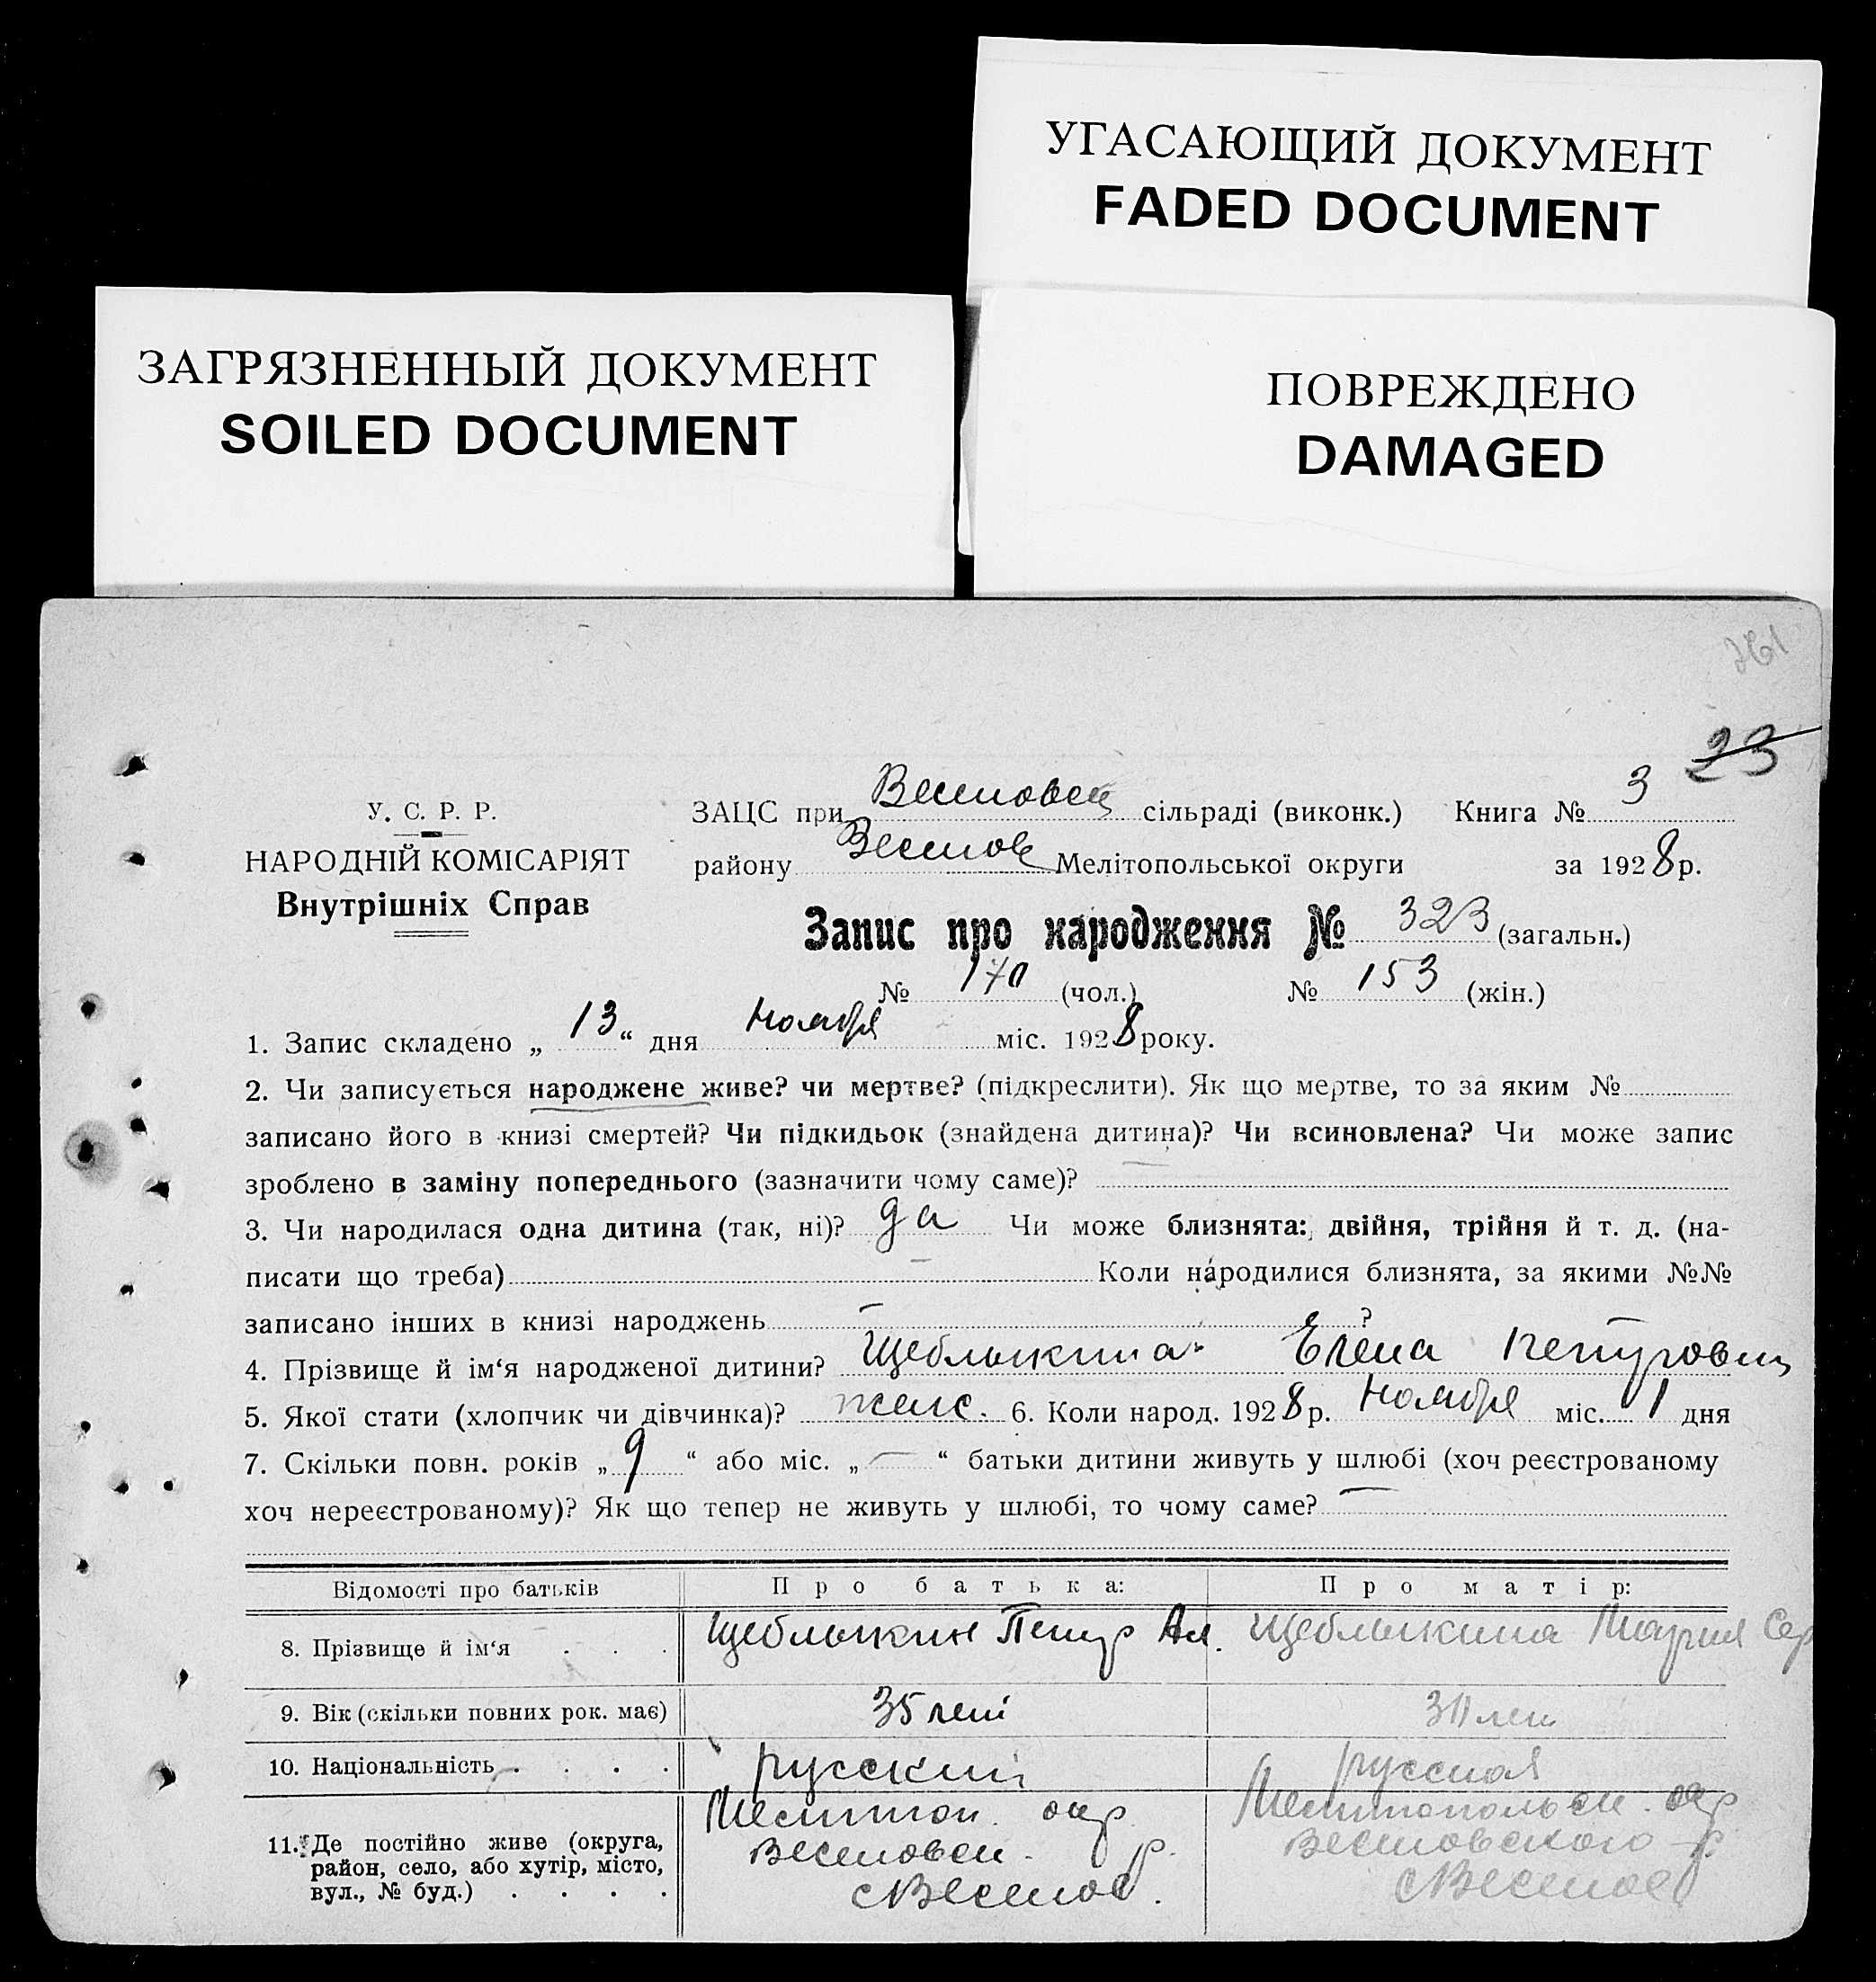 УГАСАЮЩИЙ ДОКУМЕНТ
FADED DOCUMENT
ЗАГРЯЗНЕННЫЙ ДОКУМЕНТ
SOILED DOCUMENT
ПОВРЕЖДЕНО
DAMAGED
23
У. С. Р. Р.
НАРОДНІЙ КОМІСАРІЯТ
Внутрішніх Справ
ЗАЦС при Веселовск сільраді (виконк.) Книга № 3
району Веселов Мелітопольської округи за 1928 р.
Запис про народження № 323 (загальн.)
№ 170 (чол.) № 153 (жін.)
1. Запис складено „ 13 “ дня ноября міс. 1928 року.
2. Чи записується народжене живе? чи мертве? (підкреслити). Як що мертве, то за яким №
записано його в книзі смертей? Чи підкидьок (знайдена дитина)? Чи всиновлена? Чи може запис
зроблено в заміну попереднього (зазначити чому саме)?
3. Чи народилася одна дитина (так, ні)? да Чи може близнята: двійня, трійня й т. д. (на-
писати що треба) — Коли народилися близнята, за якими №№
записано інших в книзі народжень — ?
4. Прізвище й ім‘я народженої дитини? Щеблыкина Елена Петровн
5. Якої стати (хлопчик чи дівчинка)? женс. 6. Коли народ. 1928 р. ноября міс. 1 дня
7. Скільки повн. років „ 9 “ або міс. „ — “ батьки дитини живуть у шлюбі (хоч реєстрованому
хоч нереєстрованому)? Як що тепер не живуть у шлюбі, то чому саме? —
Відомості про батьків Про батька: Про матір:
8. Прізвище й ім‘я . . . Щеблыкин Петр Ал. Щеблыкина Мария Сер
9. Вік (скільки повних рок. має) 35 лет 30 лет
10. Національність . . . . русский русская
11. Де постійно живе (округа,
район, село, або хутір, місто,
вул., № буд.) . . . .
Мелитоп. окр.
Веселовск. р.
с Веселое.
Мелитопольск. окр
Веселовского р
с Веселое